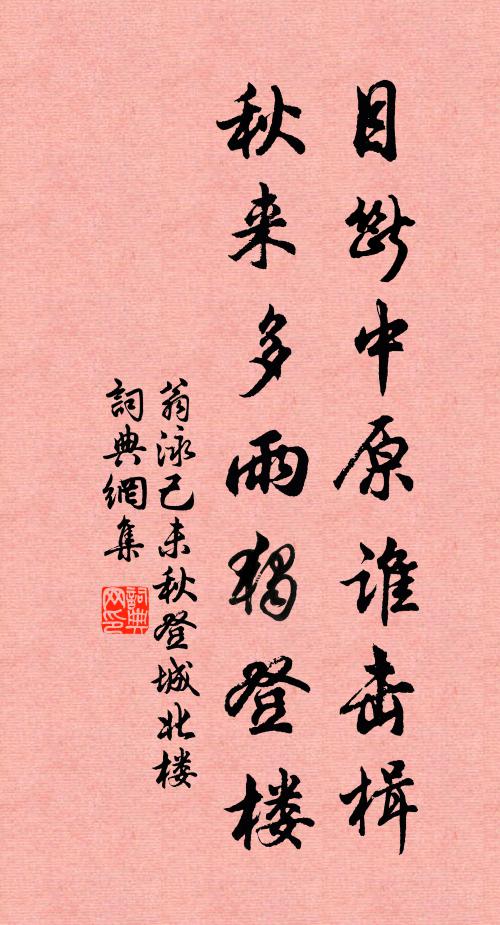 目断中原谁击楫
秋来多雨独登楼
翁泳己未秋登城北楼
詞典網集
詞典网印